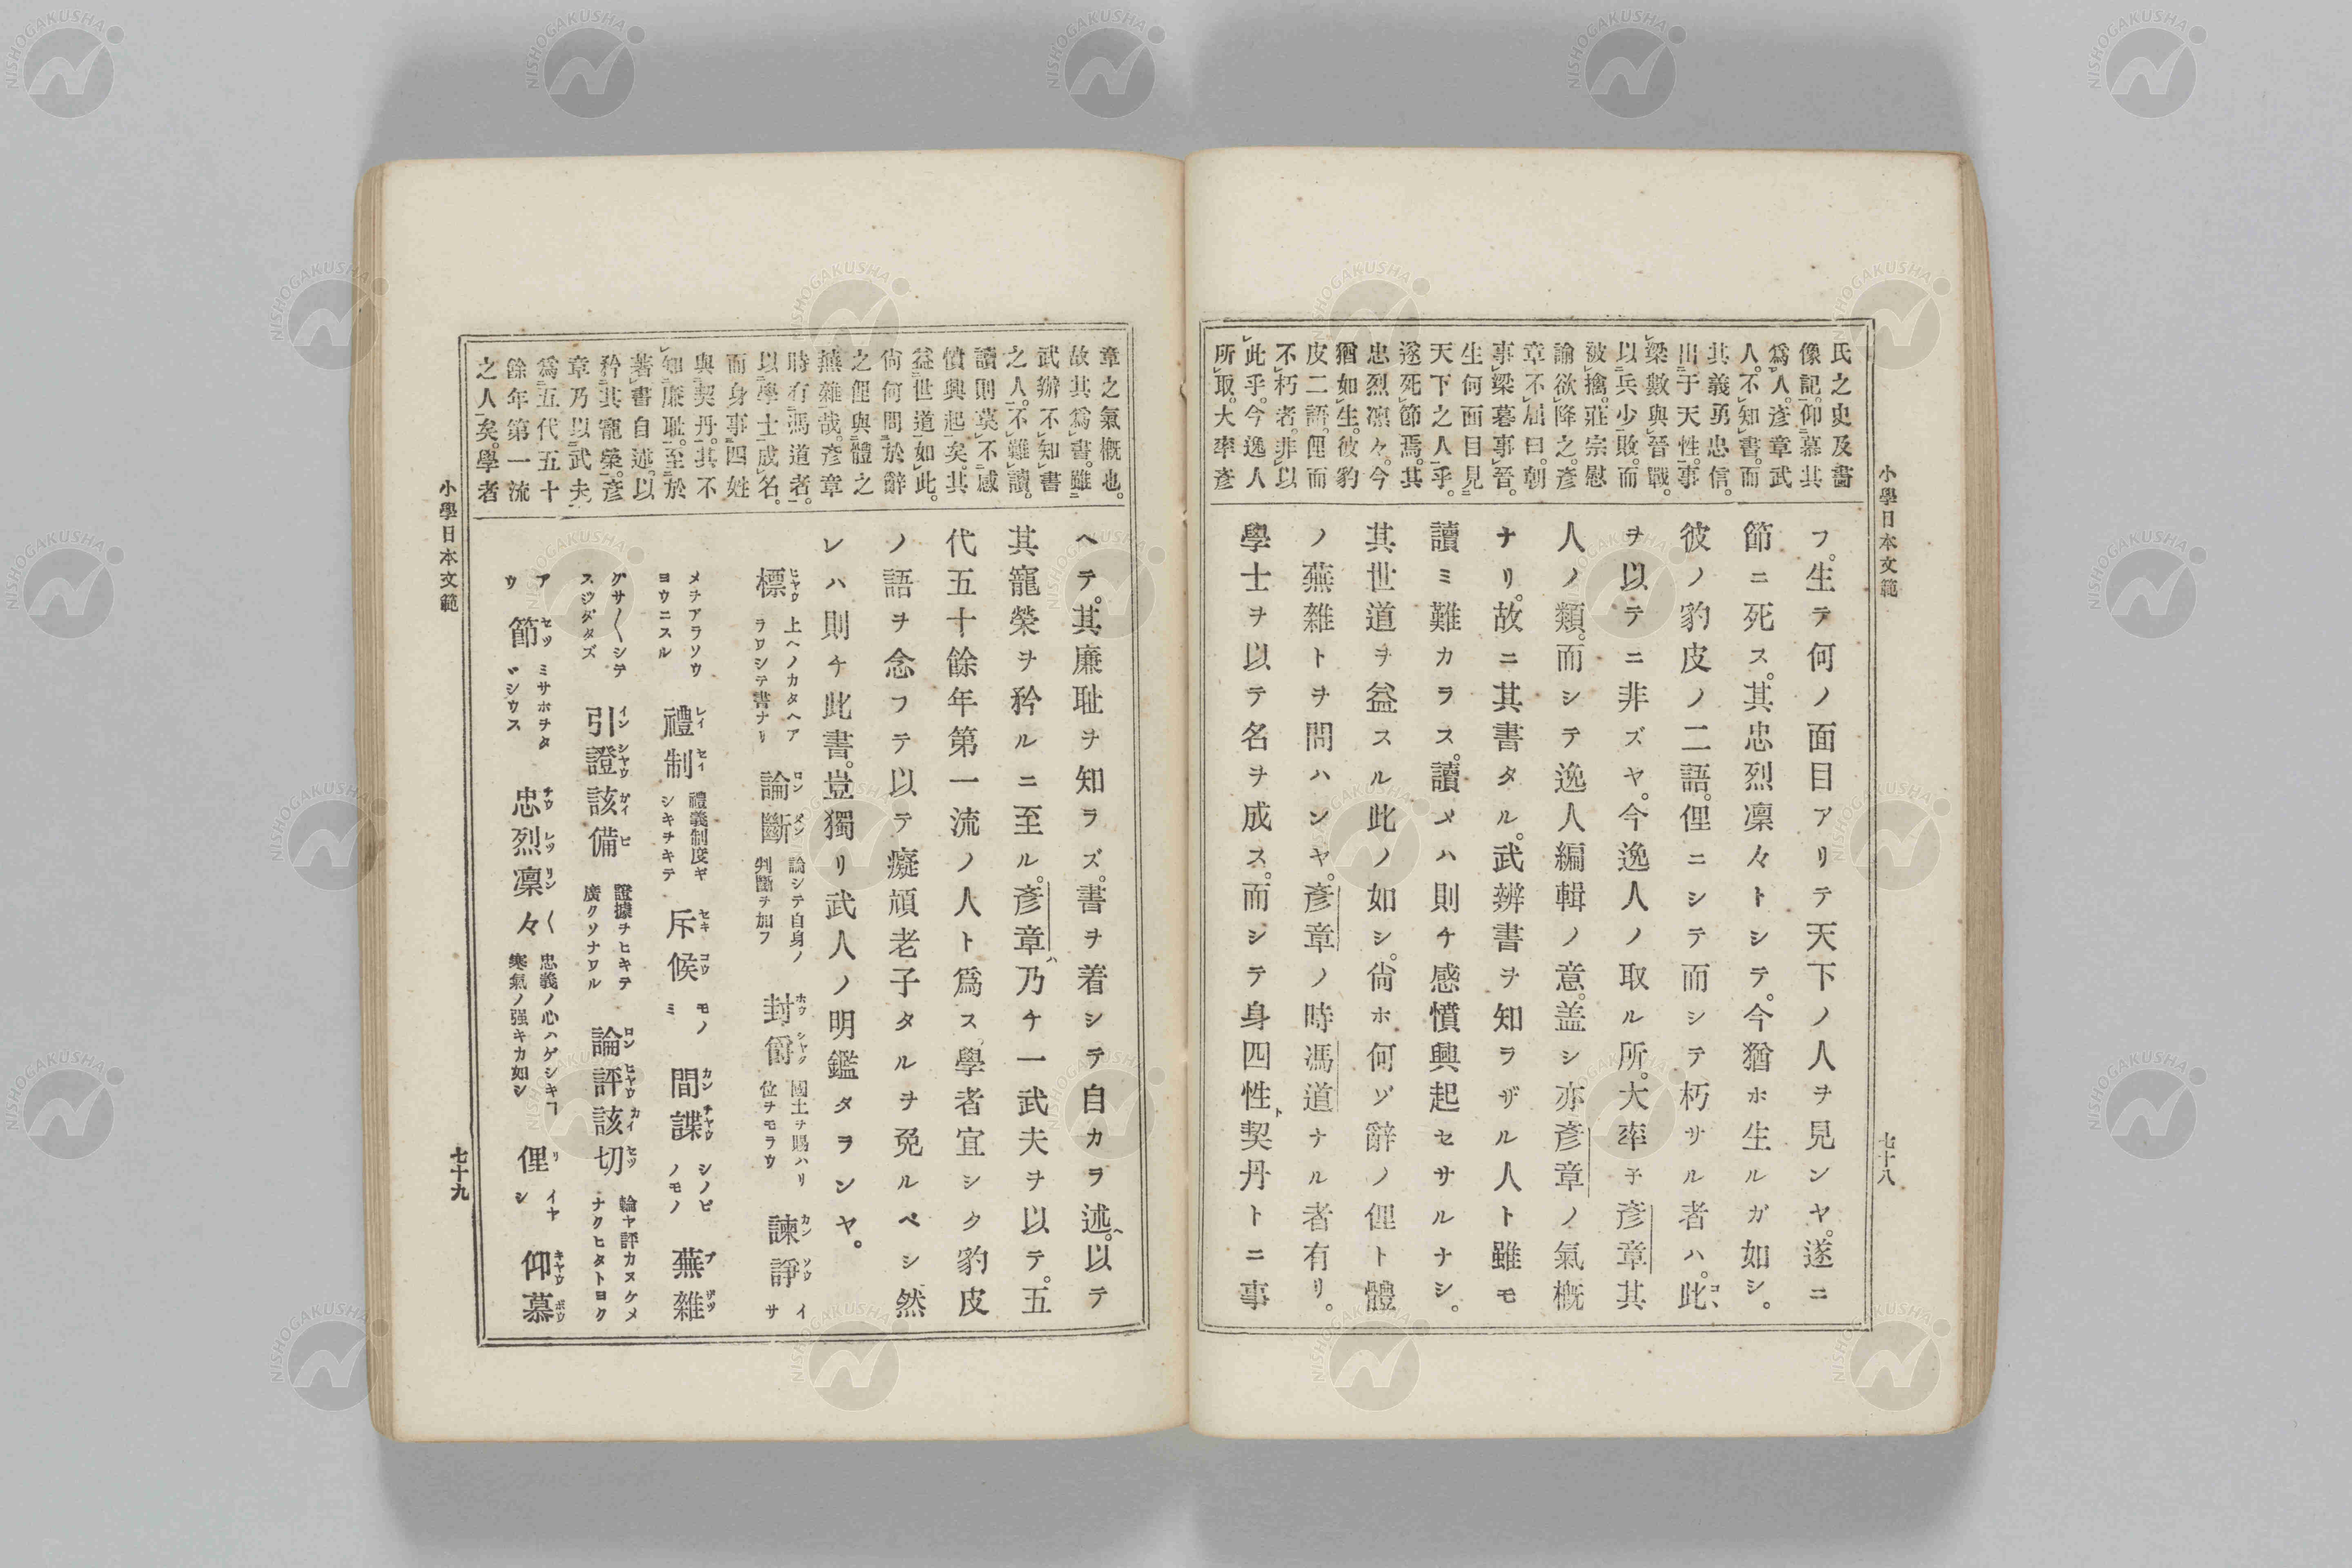 小學日本文範
七十八
氏之史及畵
像記。仰慕其
爲人。彥章武
人。不知書。而
其義勇忠信。
出于天性。事
梁數與晉戰。
以兵少敗。而
被擒。莊宗慰
諭欲降之。彥
章不屈曰。朝
事梁暮事晉。
生何面目見
天下之人乎。
遂死節焉。其
忠烈凛々。今
猶如生。彼豹
皮二語。俚而
不朽者。非以
此乎。今逸人
所取。大率彥
フ。生テ何ノ面目アリテ天下ノ人ヲ見ンヤ。遂ニ
節ニ死ス。其忠烈凛々トシテ。今猶ホ生ルガ如シ。
彼ノ豹皮ノ二語。俚ニシテ而シテ朽サル者ハ。此
ヲ以テニ非ズヤ。今逸人ノ取ル所。大率子彥章其
人ノ類。而シテ逸人編輯ノ意。盖シ亦彥章ノ氣概
ナリ。故ニ其書タル。武辨書ヲ知ラザル人ト雖モ
讀ミ難カラス。讀メハ則チ感憤興起セサルナシ。
其世道ヲ益スル此ノ如シ。尙ホ何ゾ辭ノ俚ト體
ノ蕪雜トヲ問ハンヤ。彥章ノ時馮道ナル者有リ。
學士ヲ以テ名ヲ成ス。而シテ身四性ト契丹トニ事
章之氣概也。
故其爲書。雖
武辨不知書
之人。不難讀。
讀則莫不感
憤興起矣。其
益世道如此。
尙何問於辭
之俚與體之
蕪雜哉。彥章
時有馮道者。
以學士成名。
而身事四姓
與契丹。其不
知廉耻。至於
著書自述。以
矜其寵榮。彥
章乃以武夫
爲五代五十
餘年第一流
之人矣。學者
ヘテ。其廉耻ヲ知ラズ。書ヲ着シテ自カラ述ヘ。以テ
其寵榮ヲ矜ルニ至ル。彥章ハ乃チ一武夫ヲ以テ。五
代五十餘年第一流ノ人ト爲ス。學者宜シク豹皮
ノ語ヲ念フテ以テ癡頑老子タルヲ免ルベシ然
レハ則チ此書。豈獨リ武人ノ明鑑タランヤ。
標ヒヤウ 上ヘノカタヘアラワシテ書ナリ 論斷ロンダン 論シテ自身ノ判斷ヲ加フ 封爵ホウシヤク 國土ヲ賜ハリ位ヲモラウ 諫諍カンソウ イサ
メチアラソウヨウニスル 禮制レイセイ 禮義制度ギシキチキテ 斥候セキコウ モノミ 間諜カンチヤウ シノビノモノ 蕪雜ブザツ
グサ〱シテスヂダタズ 引證該備インシヤウガイビ 證據チヒキテ廣クソナワル 論評該切ロンヒヤウカイセツ 論ヤ評カヌケメナクヒタトヨク
アウ 節セツ ミサホヲタヾシウス 忠烈凛々チウレツリン〱 忠義ノ心ハゲシキヿ寒氣ノ强キカ如シ 俚リ イヤシ 仰慕キヤウボウ
小學日本文範
七十九